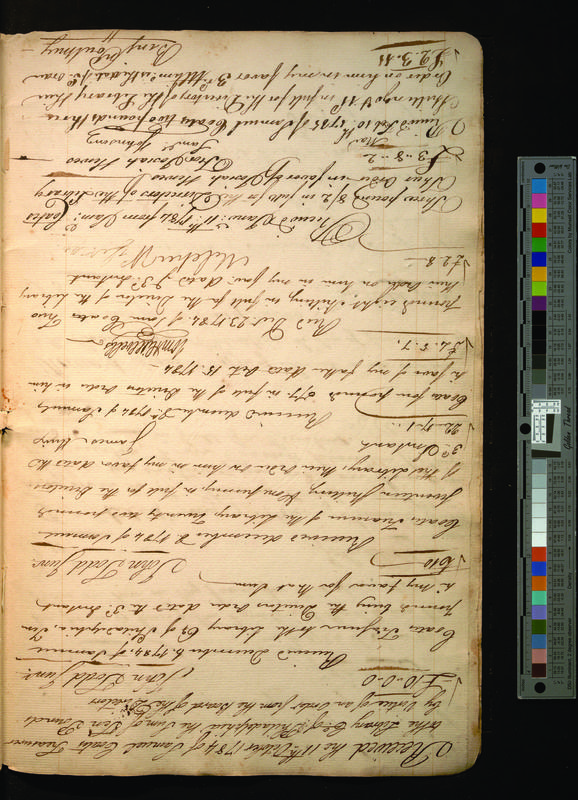 Received the 11th October 1784 of Samuel Coats Treasurer
of the Library Co. of Philadelphia the Sum of Ten Pounds
by Virtue of an Order from the Board of the Directors
£10-0-0 John Todd Junr.
Received December 6 1784 of Samuel
Coats Treasurer to the Library Co of Philadelphia, Ten
pounds being the Directors Order dated the 3d Instant
in my favor for that Sum
£10 John Todd Junr.
Received December 8 1784 of Samuel
Coates Treasurer of the Library, Twenty two pounds
Seventeen Shilling & One penny, in full for the Directors
of the Library, their Order on him in my favor dated the
3d Instant
22.17.1 James
Received december 1784 of Samuel
Coates four pounds 5/7 in full of the Directors Order on him
in favor of my father dated Oct. 15 1784
£4.5.7.
Recd Decr. 23 1784. of Sam Coates Two
pounds eight shillings, in full for the Directors of the Library
their Order on him in my favr. dated 3d Instant
£2.8 Melchior
Received Janu. 11th 1785 from Sam. Coates
Three pounds 8/2 in full for the Directors of the Library
Their Order in favor of Josiah Hewes
for Josiah Hewes
£3-8-2 James Johnson
Received Feb 10th 1785 of Samuel Coates two pounds three
Shillings & 11d in full for the Directors of the Library their
Order on him in my favor
£2.3.11 Benjn.